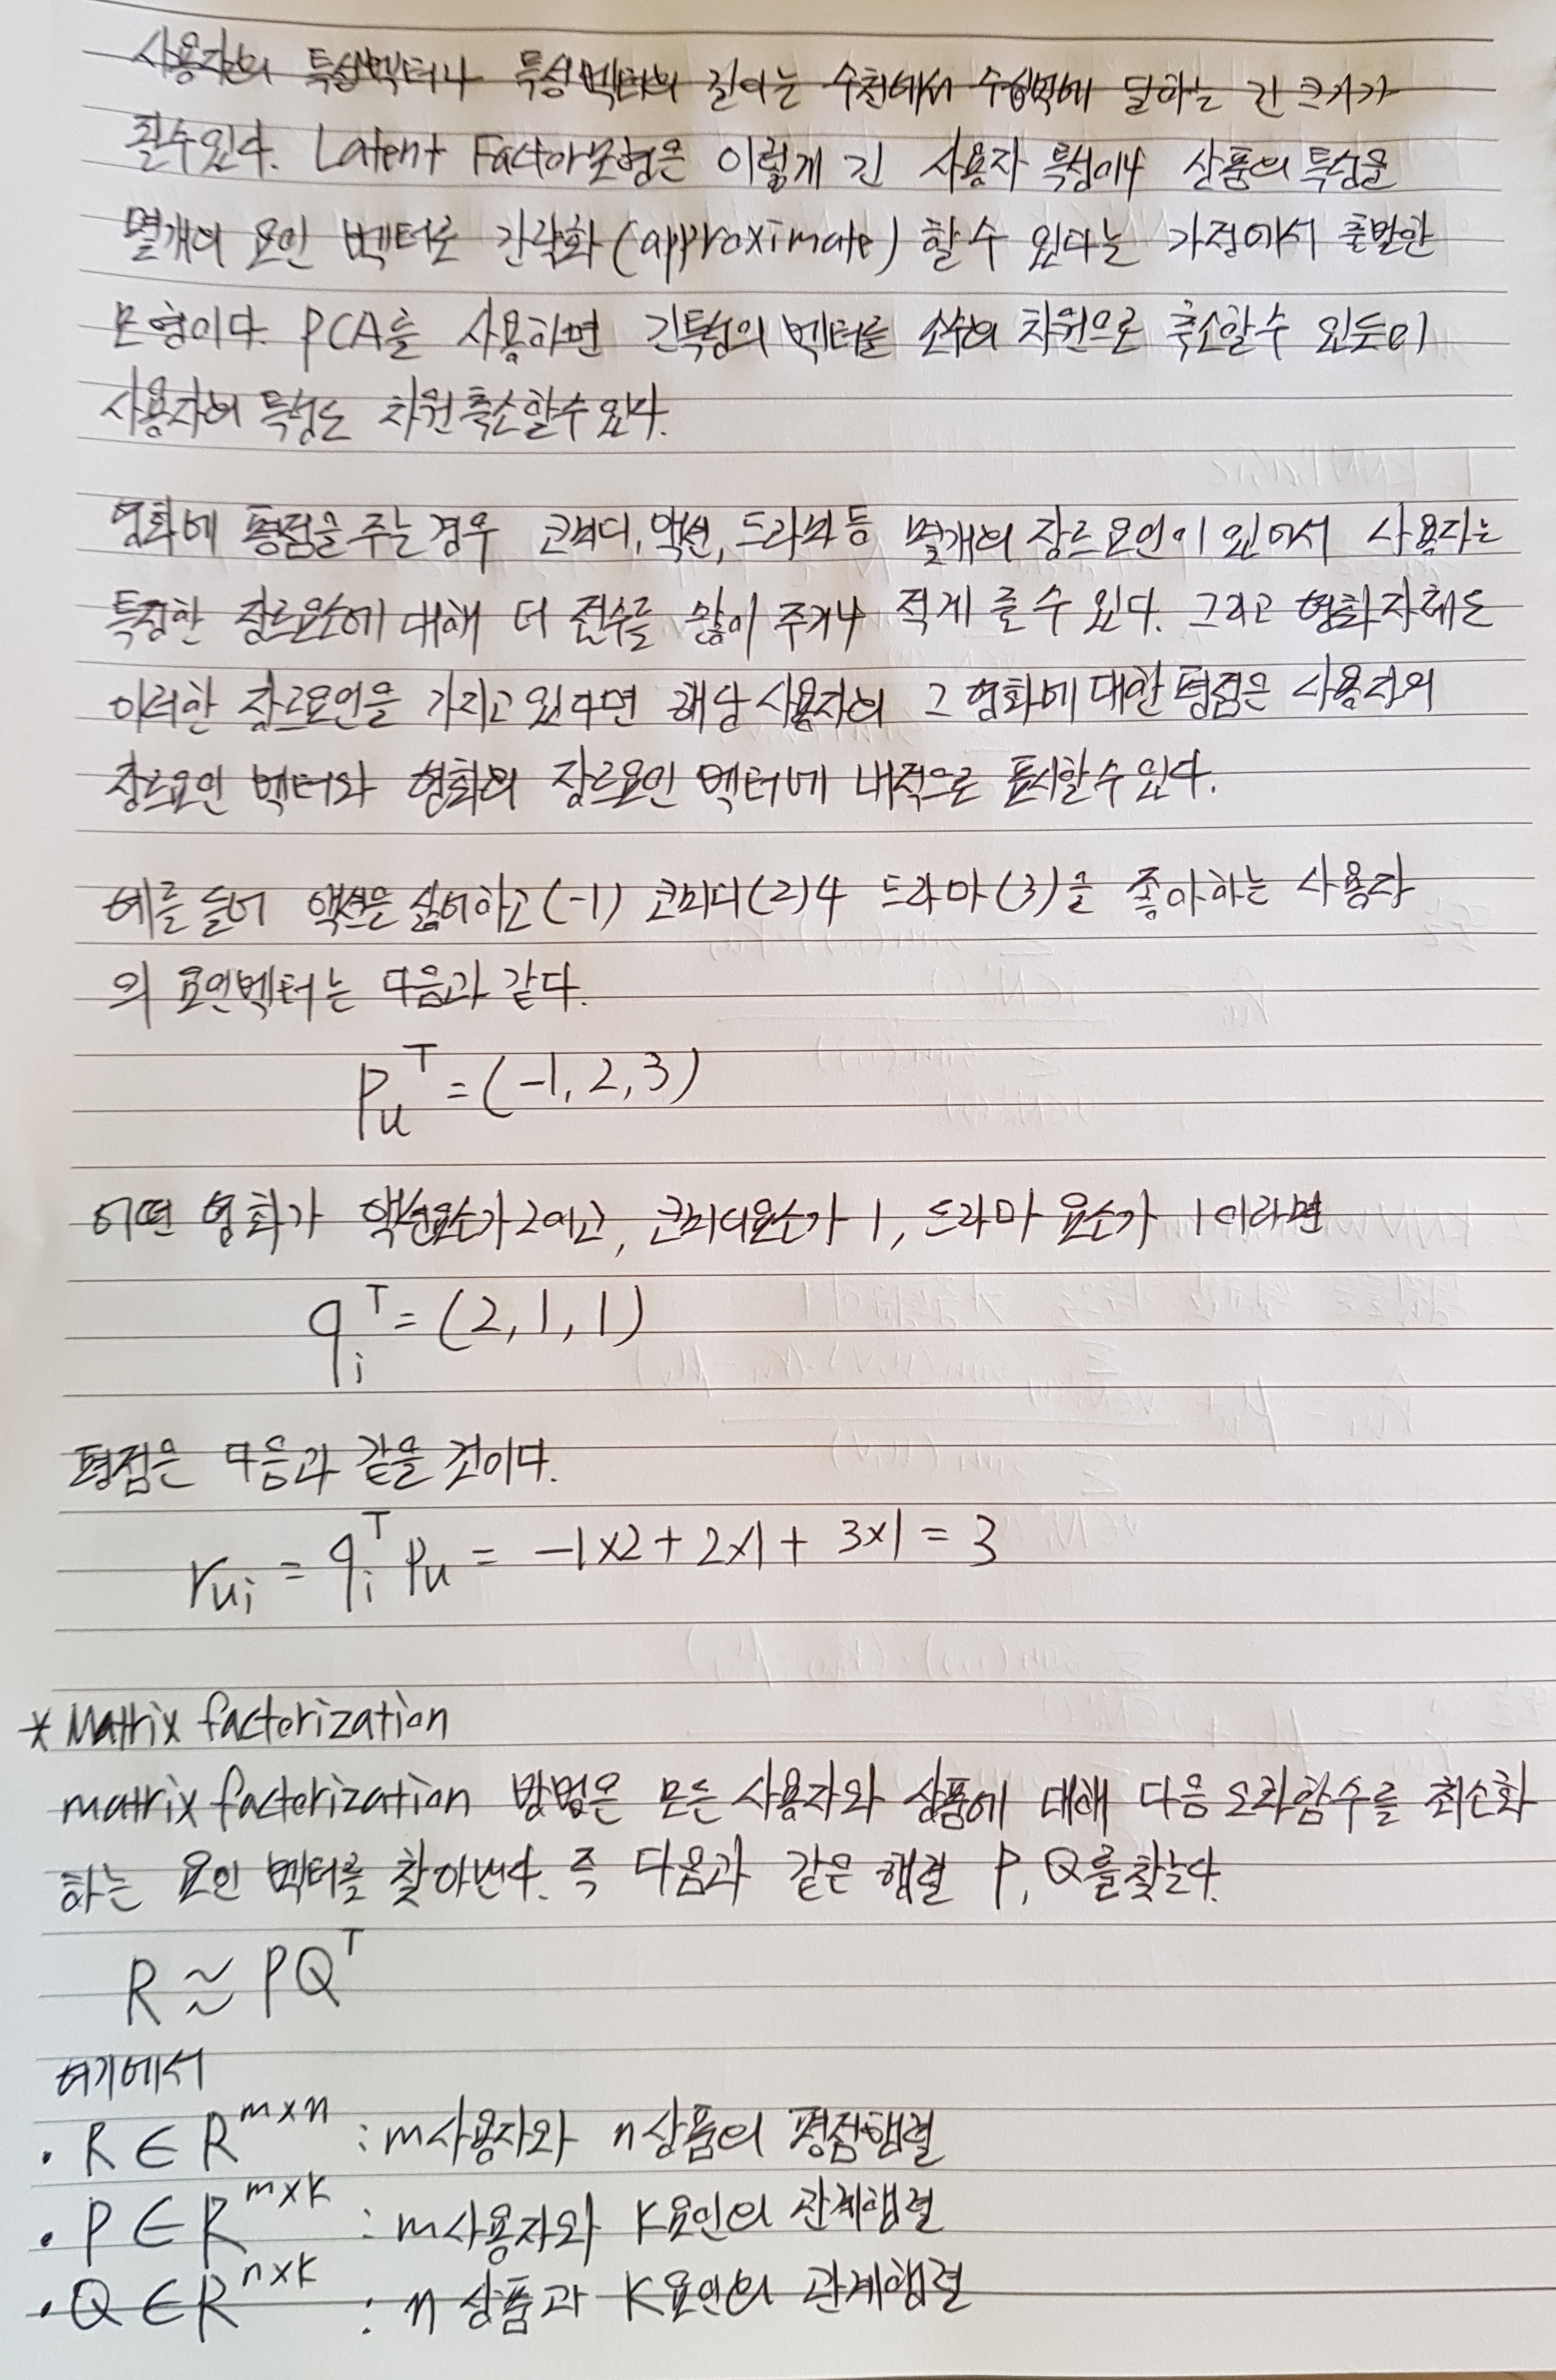 사용자의 특성벡터나 특성벡터의 길이는 수천에서 수십억에 달하는 긴 크기가
될수있다. Latent Factor모형은 이렇게 긴 사용자 특성이나 상품의 특성을
몇개의 요인 벡터로 간략화(approximate) 할수 있다는 가정에서 출발한
모형이다. PCA를 사용하면 긴특성의 벡터를 소수의 차원으로 축소할수 있듯이
사용자의 특성도 차원축소할수있다.
영화에 평점을 주는 경우 코미디, 액션, 드라마 등 몇개의 장르요인이 있어서 사용자는
특정한 장르요소에 대해 더 점수를 많이 주거나 적게 줄 수 있다. 그리고 영화자체도
이러한 장르요인을 가지고 있다면 해당 사용자의 그 영화에 대한 평점은 사용자의
장르요인 벡터와 영화의 장르요인 벡터에 내적으로 표시할수있다.
예를 들어 액션은 싫어하고(-1) 코미디(2)나 드라마(3)을 좋아하는 사용자
의 요인벡터는 다음과 같다.
Pu^T = (-1, 2, 3)
어떤 영화가 액션요소가 2이고, 코미디요소가 1, 드라마 요소가 1이라면
qi^T = (2, 1, 1)
평점은 다음과 같을 것이다.
rui = qi^T Pu = -1×2 + 2×1 + 3×1 = 3
* Matrix factorization
matrix factorization 방법은 모든 사용자와 상품에 대해 다음 오차함수를 최소화
하는 요인 벡터를 찾아낸다. 즉 다음과 같은 행렬 P, Q를 찾는다.
R ≈ PQ^T
여기에서
· R ∈ R^m×n : m사용자와 n상품의 평점행렬
· P ∈ R^m×K : m사용자와 K요인의 관계행렬
· Q ∈ R^n×K : n 상품과 K요인의 관계행렬